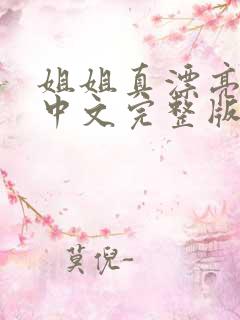 姐姐真漂亮
中文完整版
莫倪-